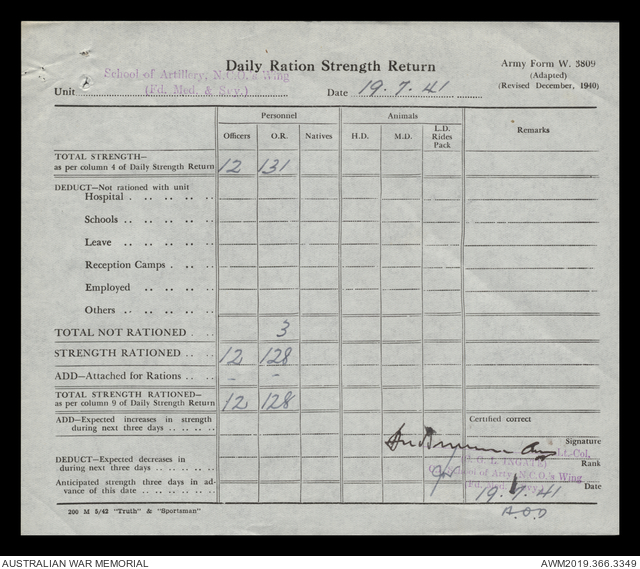 Daily Ration Strength Return
Army Form W. 3809
(Adapted)
(Revised December, 1940)
School of Artillery, N.C.O.'s Wing
(Fd. Med. & Svy.)
Unit
Date 19.7.41
Personnel Animals Remarks
Officers O.R. Natives H.D. M.D. L.D. Rides Pack
TOTAL STRENGTH—
as per column 4 of Daily Strength Return 12 131
DEDUCT—Not rationed with unit
Hospital
Schools
Leave
Reception Camps
Employed
Others
TOTAL NOT RATIONED 3
STRENGTH RATIONED 12 128
ADD—Attached for Rations - -
TOTAL STRENGTH RATIONED—
as per column 9 of Daily Strength Return 12 128
ADD—Expected increases in strength
during next three days
Certified correct
Signature
Lt-Col,
Rank
DEDUCT—Expected decreases in
during next three days
School of Arty N.C.O.'s Wing
Anticipated strength three days in ad-
vance of this date
19.7.41 Date
200 M 5/42 "Truth" & "Sportsman"
AUSTRALIAN WAR MEMORIAL
AWM2019.366.3349